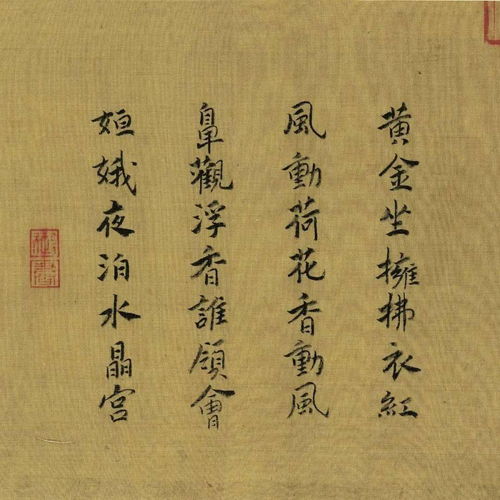 黄金坐擁拂衣紅
風動荷花香動風
鼻觀浮香誰領會
姮娥夜泊水晶宫